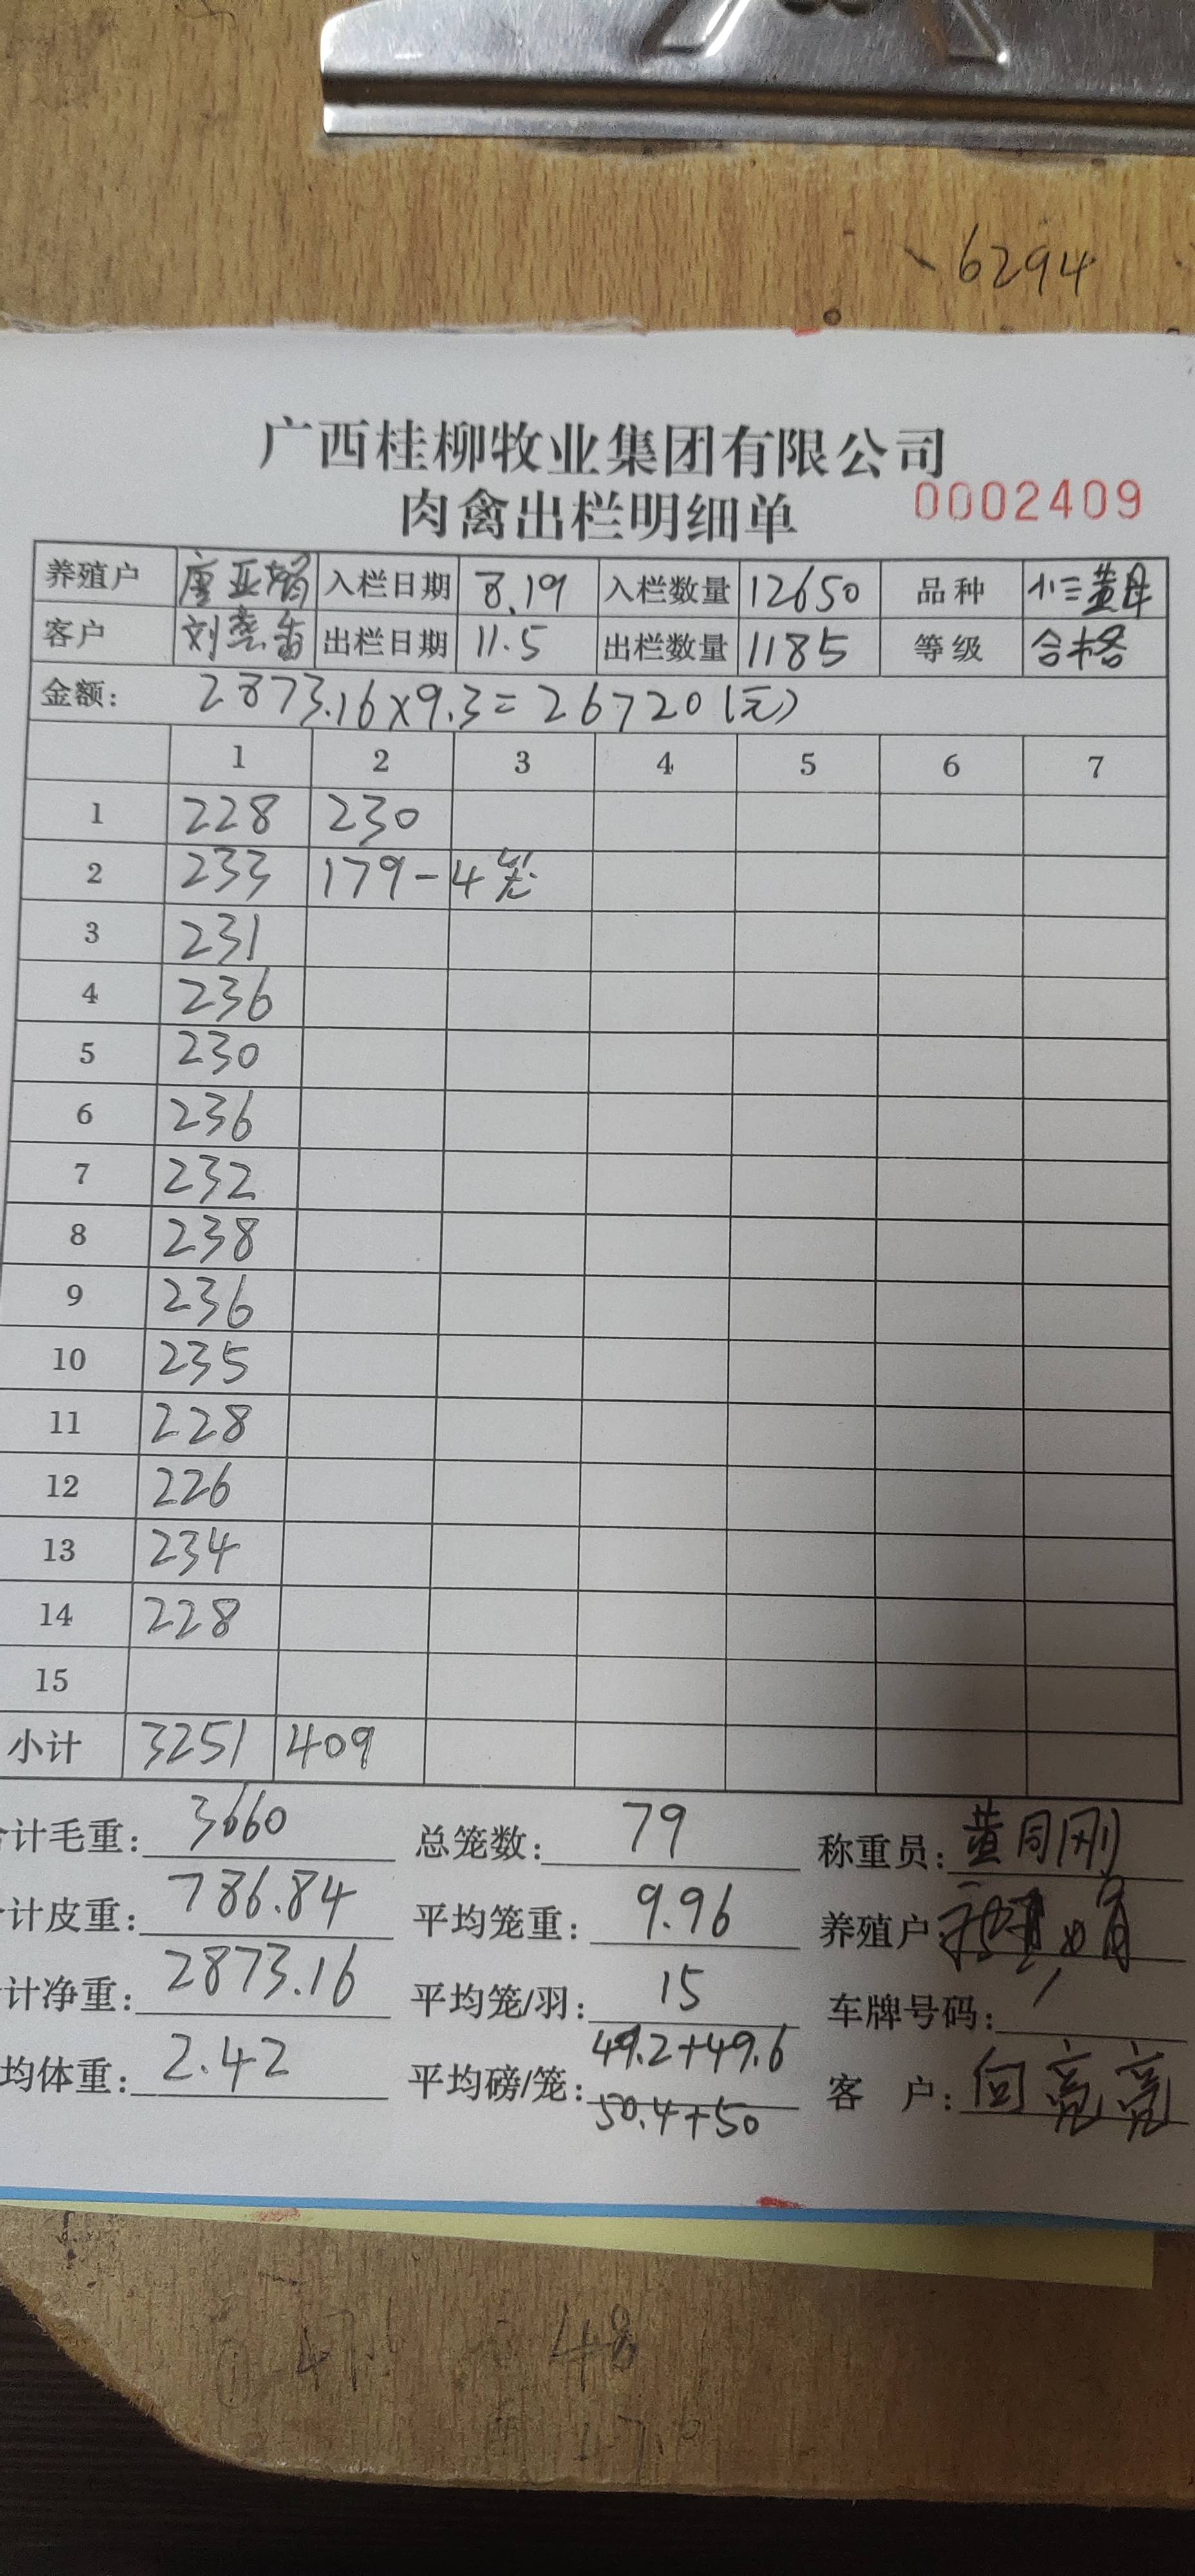 6294
广西桂柳牧业集团有限公司
肉禽出栏明细单 0002409
养殖户 唐亚娟 入栏日期 8.19 入栏数量 12650 品种 小三黄母
客户 出栏日期 11.5 出栏数量 1185 等级 合格
金额: 2873.16×9.3=26720(元)
1 2 3 4 5 6 7
1 228 230
2 233 179-4笼
3 231
4 236
5 230
6 236
7 232
8 238
9 236
10 235
11 228
12 226
13 234
14 228
15
小计 3251 409
计毛重: 3660 总笼数: 79 称重员: 黄同刚
计皮重: 786.84 平均笼重: 9.96 养殖户
计净重: 2873.16 平均笼/羽: 15 车牌号码: /
均体重: 2.42 平均磅/笼: 49.2+49.6 客 户: 向亮亮
50.4+50
48